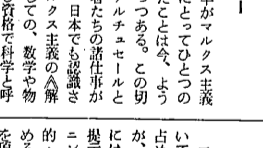 がマルクス主義
にとってひとつの
たことは今、よう
つつある。この切
ルチュセールと
者たちの諸仕事が
日本でも認識さ
クス主義の《解
しての、数学や物
資格で科学と呼
いて
占め
が、
には
提示
ニン
的な
める
を原